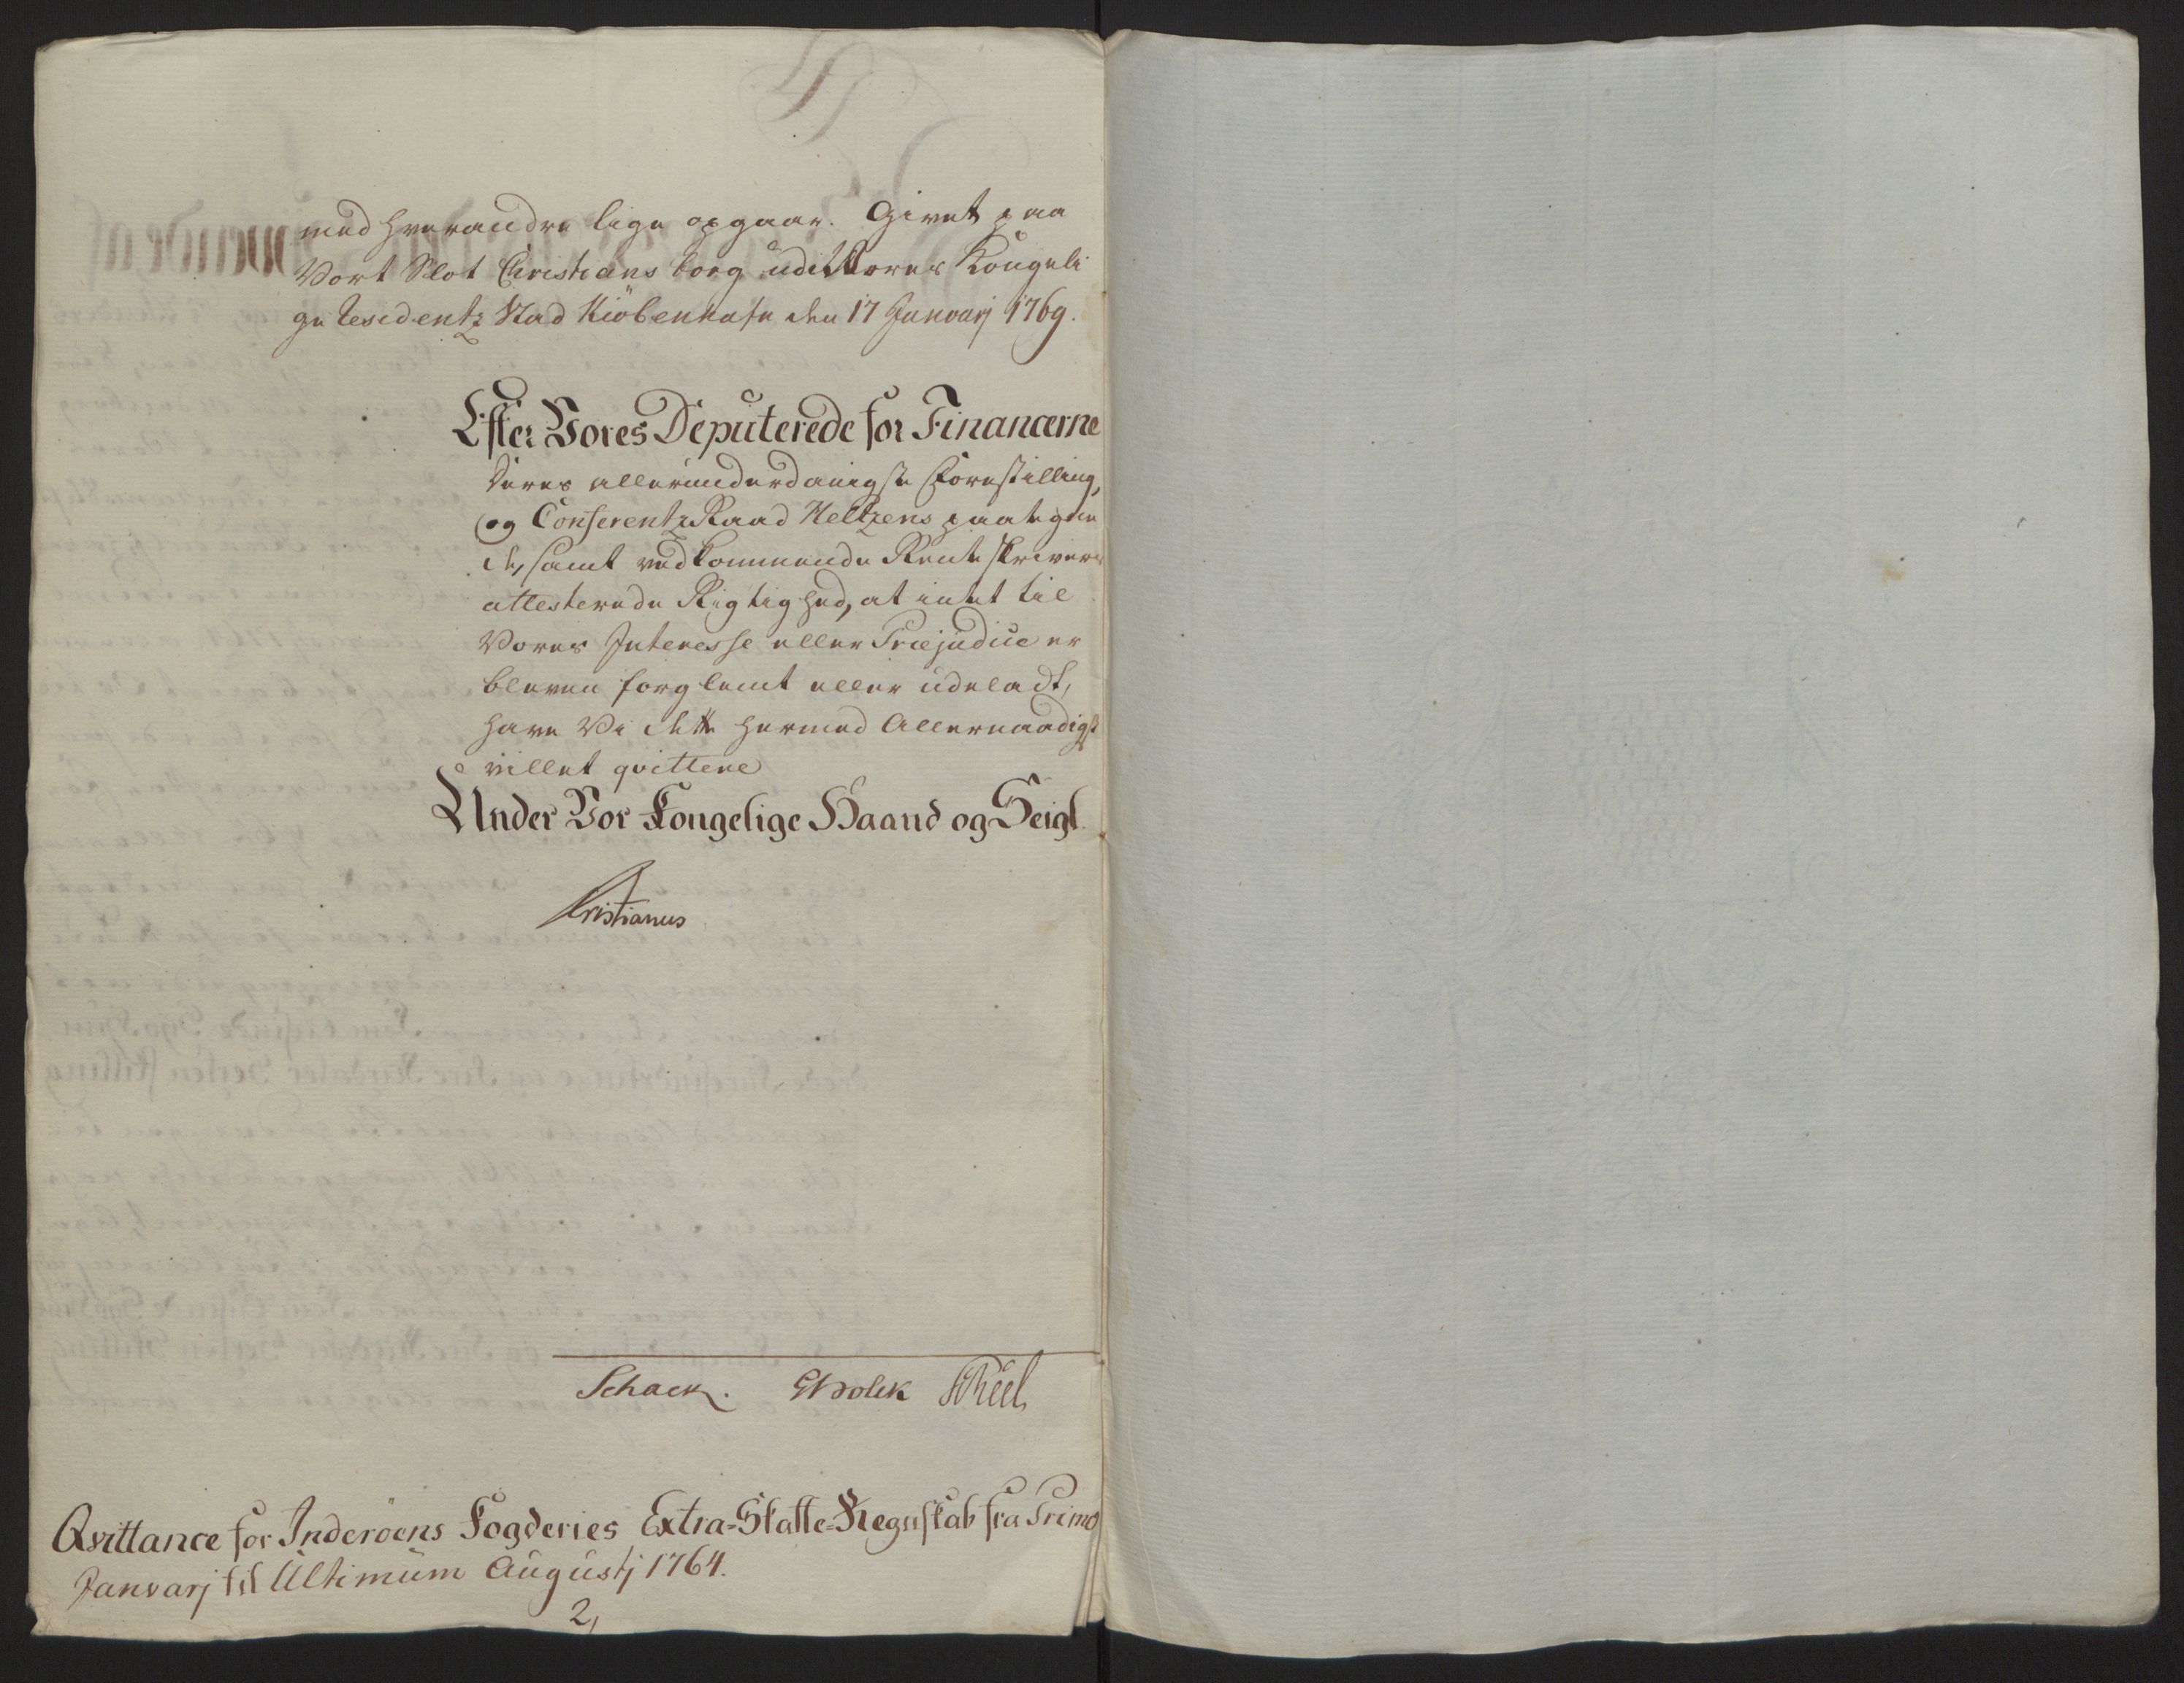 med hverandre lige opgaar. Givet paa
Vort Slot Christiansborg udi Vores Kongeli
ge Residentz Stad Kiöbenhafn den 17 Janvarj 1769.
Efter Vores Deputerede for Financerne
deres allerunderdanigste Forestilling,
og ConferentzRaad Heltzens paategne
de, samt vedkommende Renteskrivers
attesterede Rigtighed, at intet til
Vores Interesse eller Præjudice er
bleven forglemt eller udeladt,
have Vi dette hermed Allernaadigst
villet qvittere
Under Vor Kongelige Haand og Seigl.
Christianus
Schack. Holck Scheel
Qvittance for Inderöens Fogderies Extra-Skatte-Regnskab fra Primo
Janvarj til Ultimum Augustj 1764.
2,